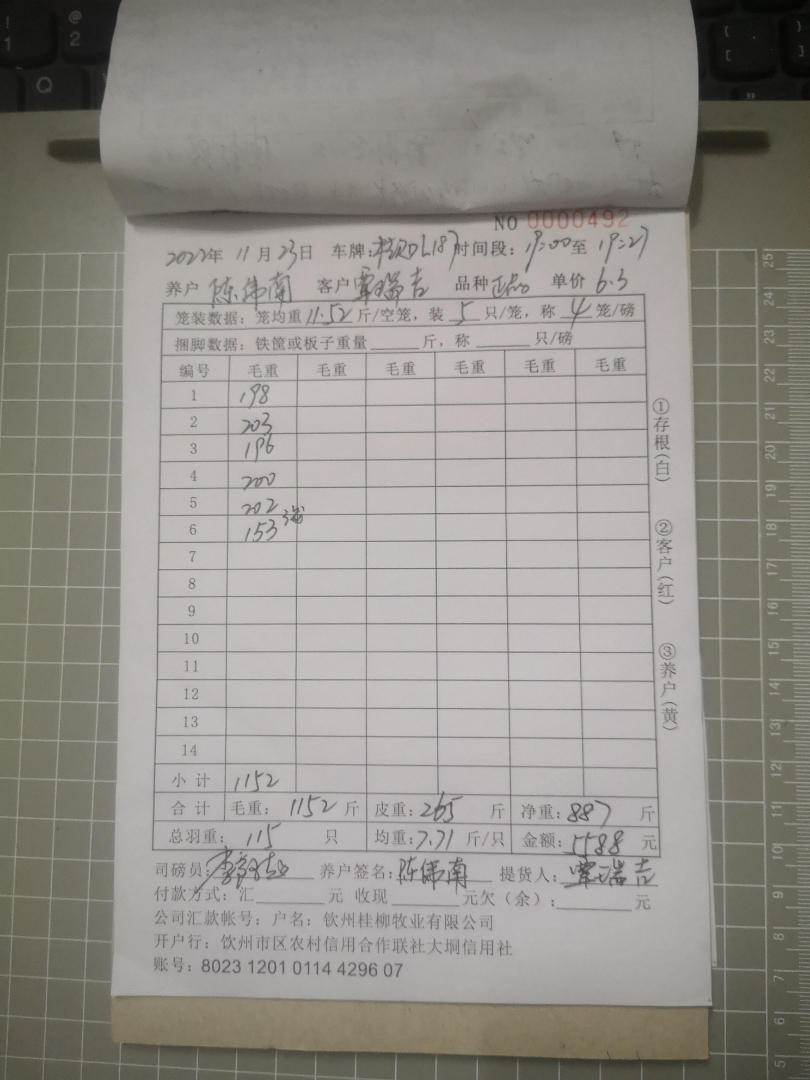 NO 0000492
2022年 11月23日 车牌:桂DL187 时间段:19:00至19:27
养户 陈伟南 客户 覃瑞吉 品种 正品 单价 6.3
笼装数据:笼均重11.52斤/空笼,装5只/笼,称4笼/磅
捆脚数据:铁筐或板子重量______斤,称______只/磅
编号 毛重 毛重 毛重 毛重 毛重 毛重
1 198
2 203
3 196
4 200
5 202
6 153 3笼
7
8
9
10
11
12
13
14
小计 1152
合计 毛重:1152斤 皮重:265斤 净重:887斤
总羽重:115只 均重:7.71斤/只 金额:5588元
司磅员: 养户签名:陈伟南 提货人:覃瑞吉
付款方式:汇______元 收现______元欠(余):______元
公司汇款帐号:户名:钦州桂柳牧业有限公司
开户行:饮州市区农村信用合作联社大垌信用社
账号:8023 1201 0114 4296 07
①存根(白)
②客户(红)
③养户(黄)